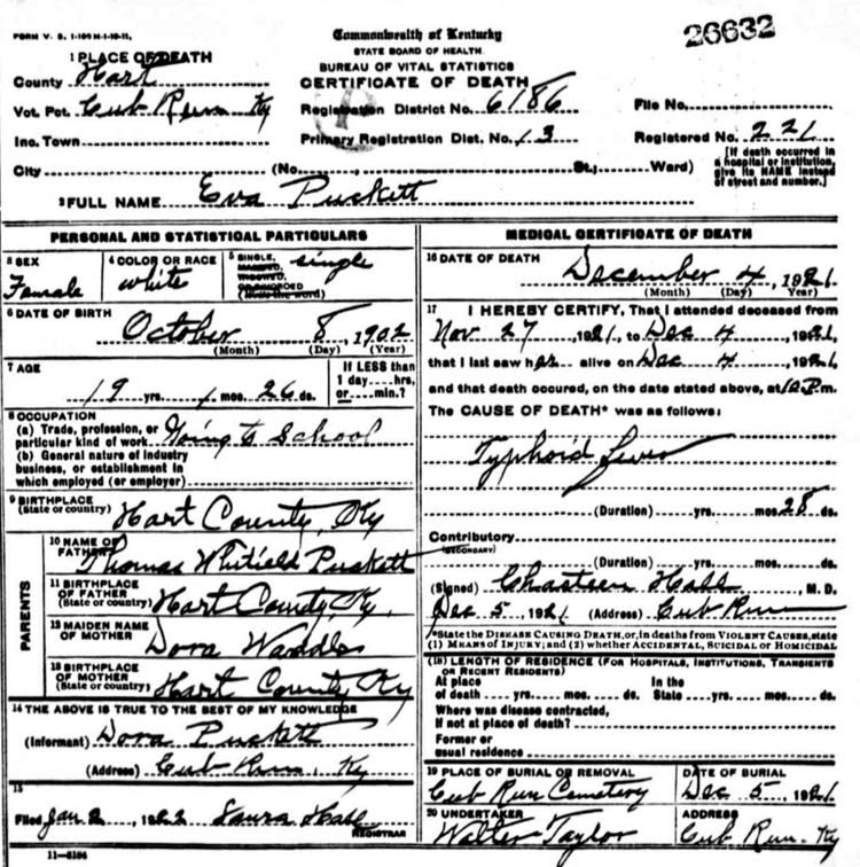 FORM V. S. 1-
Commonwealth of Kentucky
26632
STATE BOARD OF HEALTH
BUREAU OF VITAL STATISTICS
CERTIFICATE OF DEATH
1 PLACE OF DEATH
County Hart
Vot. Pct. Cub Run Ky
Registration District No. 6186
File No.
Inc. Town
Primary Registration Dist. No. 13
Registered No. 221
City (No. , St.; Ward)
[If death occurred in a hospital or institution, give its NAME instead of street and number.]
2 FULL NAME Eva Puckett
PERSONAL AND STATISTICAL PARTICULARS
3 SEX
Female
4 COLOR OR RACE
white
5 SINGLE, MARRIED, WIDOWED, OR DIVORCED (Write the word)
single
6 DATE OF BIRTH
October 8, 1902
(Month) (Day) (Year)
7 AGE
19 yrs. 1 mos. 26 ds.
If LESS than
1 day....hrs,
or....min.?
8 OCCUPATION
(a) Trade, profession, or
particular kind of work Going to School
(b) General nature of industry
business, or establishment in
which employed (or employer)
9 BIRTHPLACE
(State or country) Hart County, Ky
PARENTS
10 NAME OF
FATHER Thomas Whitfield Puckett
11 BIRTHPLACE
OF FATHER
(State or country) Hart County, Ky.
12 MAIDEN NAME
OF MOTHER Dora Waddle
13 BIRTHPLACE
OF MOTHER
(State or country) Hart County Ky
14 THE ABOVE IS TRUE TO THE BEST OF MY KNOWLEDGE
(Informant) Dora Puckett
(Address) Cub Run, Ky
15
Filed Jan 2, 1922 Laura Hall
REGISTRAR
11—
MEDICAL CERTIFICATE OF DEATH
16 DATE OF DEATH
December 4, 1921
(Month) (Day) (Year)
17 I HEREBY CERTIFY, That I attended deceased from
Nov 27, 1921, to Dec 4, 1921,
that I last saw her alive on Dec 4, 1921,
and that death occured, on the date stated above, at 10 P.m.
The CAUSE OF DEATH* was as follows:
Typhoid Fever
(Duration) yrs. mos. 28 ds.
Contributory
(SECONDARY)
(Duration) yrs. mos. ds.
(Signed) Chasteen Hall, M. D.
Dec 5, 1921 (Address) Cub Run
*State the DISEASE CAUSING DEATH, or, in deaths from VIOLENT CAUSES, state
(1) MEANS OF INJURY; and (2) whether ACCIDENTAL, SUICIDAL or HOMICIDAL
(18) LENGTH OF RESIDENCE (FOR HOSPITALS, INSTITUTIONS, TRANSIENTS
OR RECENT RESIDENTS)
At place In the
of death .... yrs. .... mos. .... ds. State .... yrs. .... mos. .... ds.
Where was disease contracted,
If not at place of death?
Former or
usual residence
19 PLACE OF BURIAL OR REMOVAL
Cub Run Cemetery
DATE OF BURIAL
Dec 5, 1921
20 UNDERTAKER
Walter Taylor
ADDRESS
Cub Run. Ky